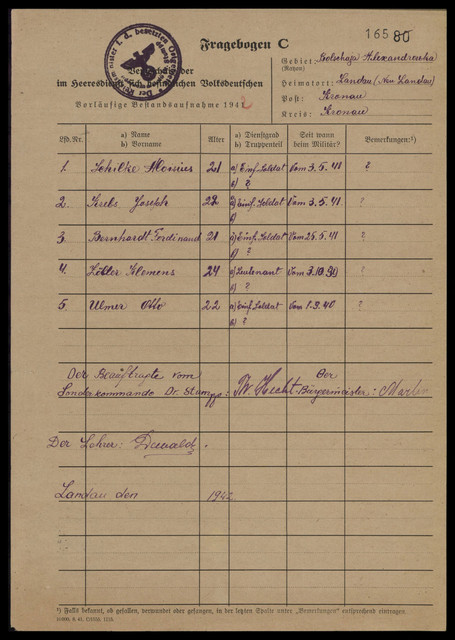 165 80
Fragebogen C
Verzeichnis der
im Heeresdienst sich befindlichen Volksdeutschen
Vorläufige Bestandsaufnahme 1942
Gebiet: Bolschaja Alexandrowka
(Rayon)
Heimatort: Landau (Neu Landau)
Post: Kronau
Kreis: Kronau
Lfd.Nr. a) Name Alter a) Dienstgrad Seit wann Bemerkungen:¹)
b) Vorname b) Truppenteil beim Militär?
1. Schilke Aloisius 21 a) Einf. Soldat Vom 3.5.41 ?
b) ?
2. Krebs Joseph 22 a) Einf. Soldat Vom 3.5.41 ?
b) ?
3. Bernhardt Ferdinand 21 a) Einf. Soldat Vom 26.5.41 ?
b) ?
4. Klemens 24 a) Leutenant Vom 3.10.90 ?
b) ?
5. Ulmer Otto 22 a) Einf. Soldat Vom 1.9.40 ?
b) ?
Der Beauftragte vom Der
Sonderkommando Dr. Stumpp: W. Hecht Bürgermeister:
Der Lehrer:
Landau den 1942
¹) Falls bekannt, ob gefallen, verwundet oder gefangen, in der letzten Spalte unter „Bemerkungen" entsprechend eintragen.